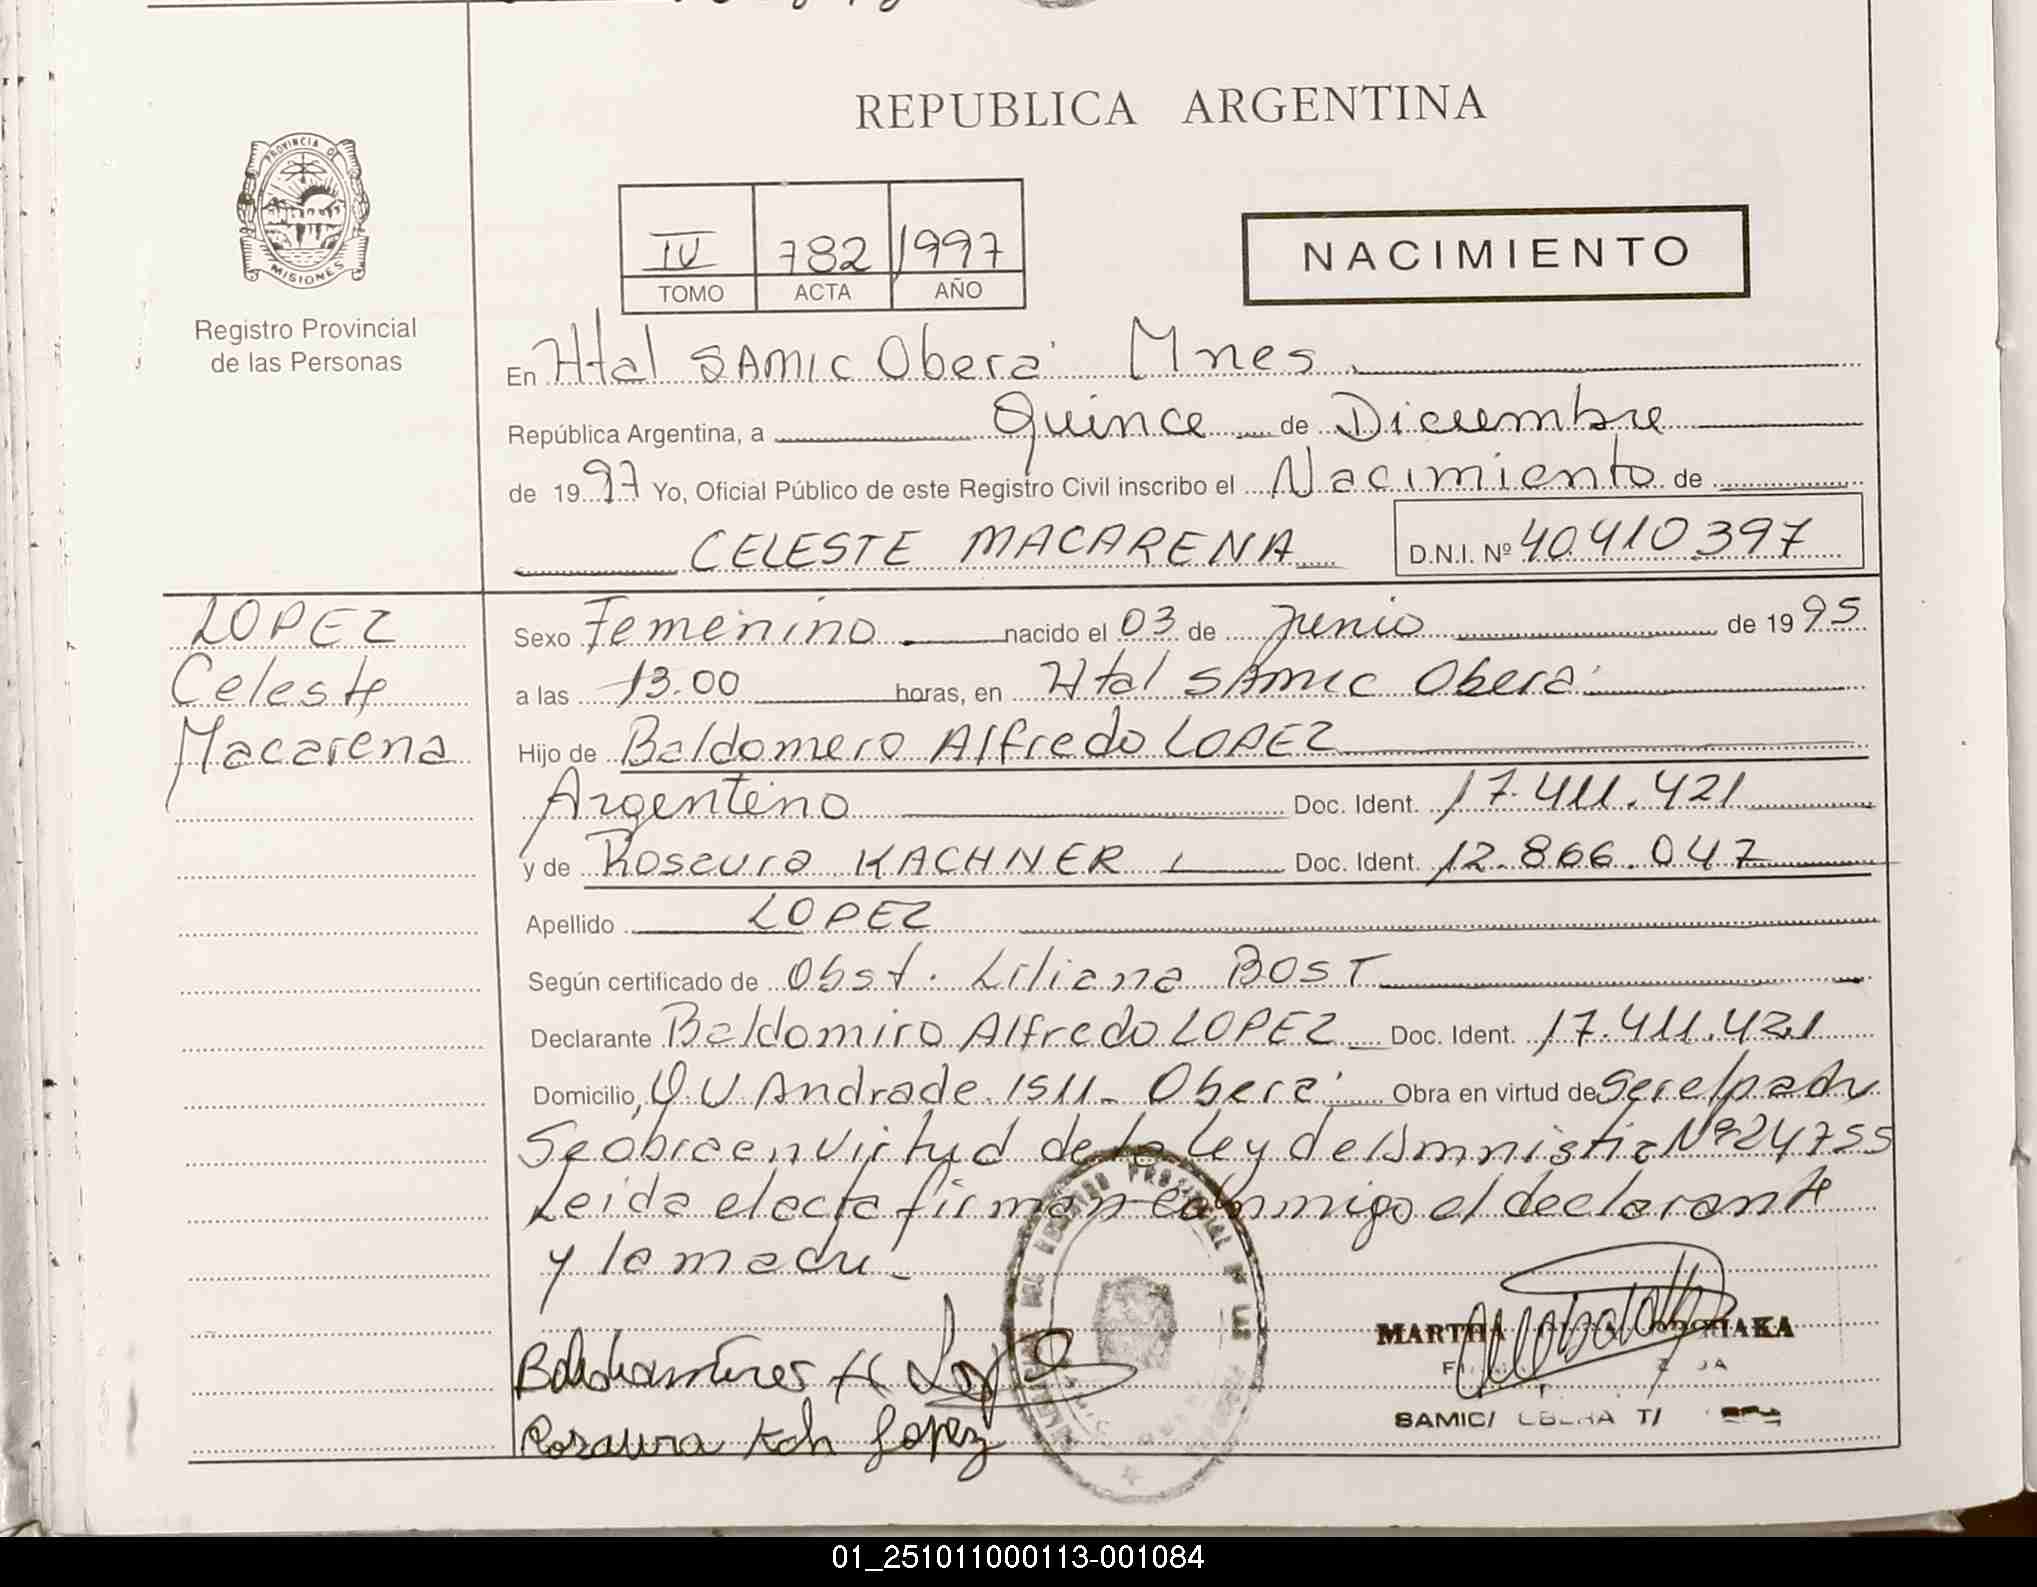 REPUBLICA ARGENTINA
PROVINCIA DE
MISIONES
Registro Provincial
de las Personas
IV 782 1997
TOMO ACTA AÑO
NACIMIENTO
En Htal SAMIC Oberá Mnes
República Argentina, a Quince de Diciembre
de 1997 Yo, Oficial Público de este Registro Civil inscribo el Nacimiento de
CELESTE MACARENA D.N.I. Nº 40.410.397
LOPEZ
Celeste
Macarena
Sexo Femenino nacido el 03 de Junio de 1995
a las 13.00 horas, en Htal SAMIC Oberá
Hijo de Baldomero Alfredo LOPEZ
Argentino Doc. Ident. 17.411.421
y de Rosaura KACHNER Doc. Ident. 12.866.047
Apellido LOPEZ
Según certificado de Obst. Liliana BOST
Declarante Baldomiro Alfredo LOPEZ Doc. Ident. 17.411.421
Domicilio, O.V Andrade 1511 - Oberá Obra en virtud de ser el padre
Se obra en virtud de la Ley de Amnistia Nº 24755
Leida el acta firman conmigo el declarante
y la madre -
Lopez
Rosaura Kch Lopez
MARTHA
SAMIC/
01_251011000113-001084